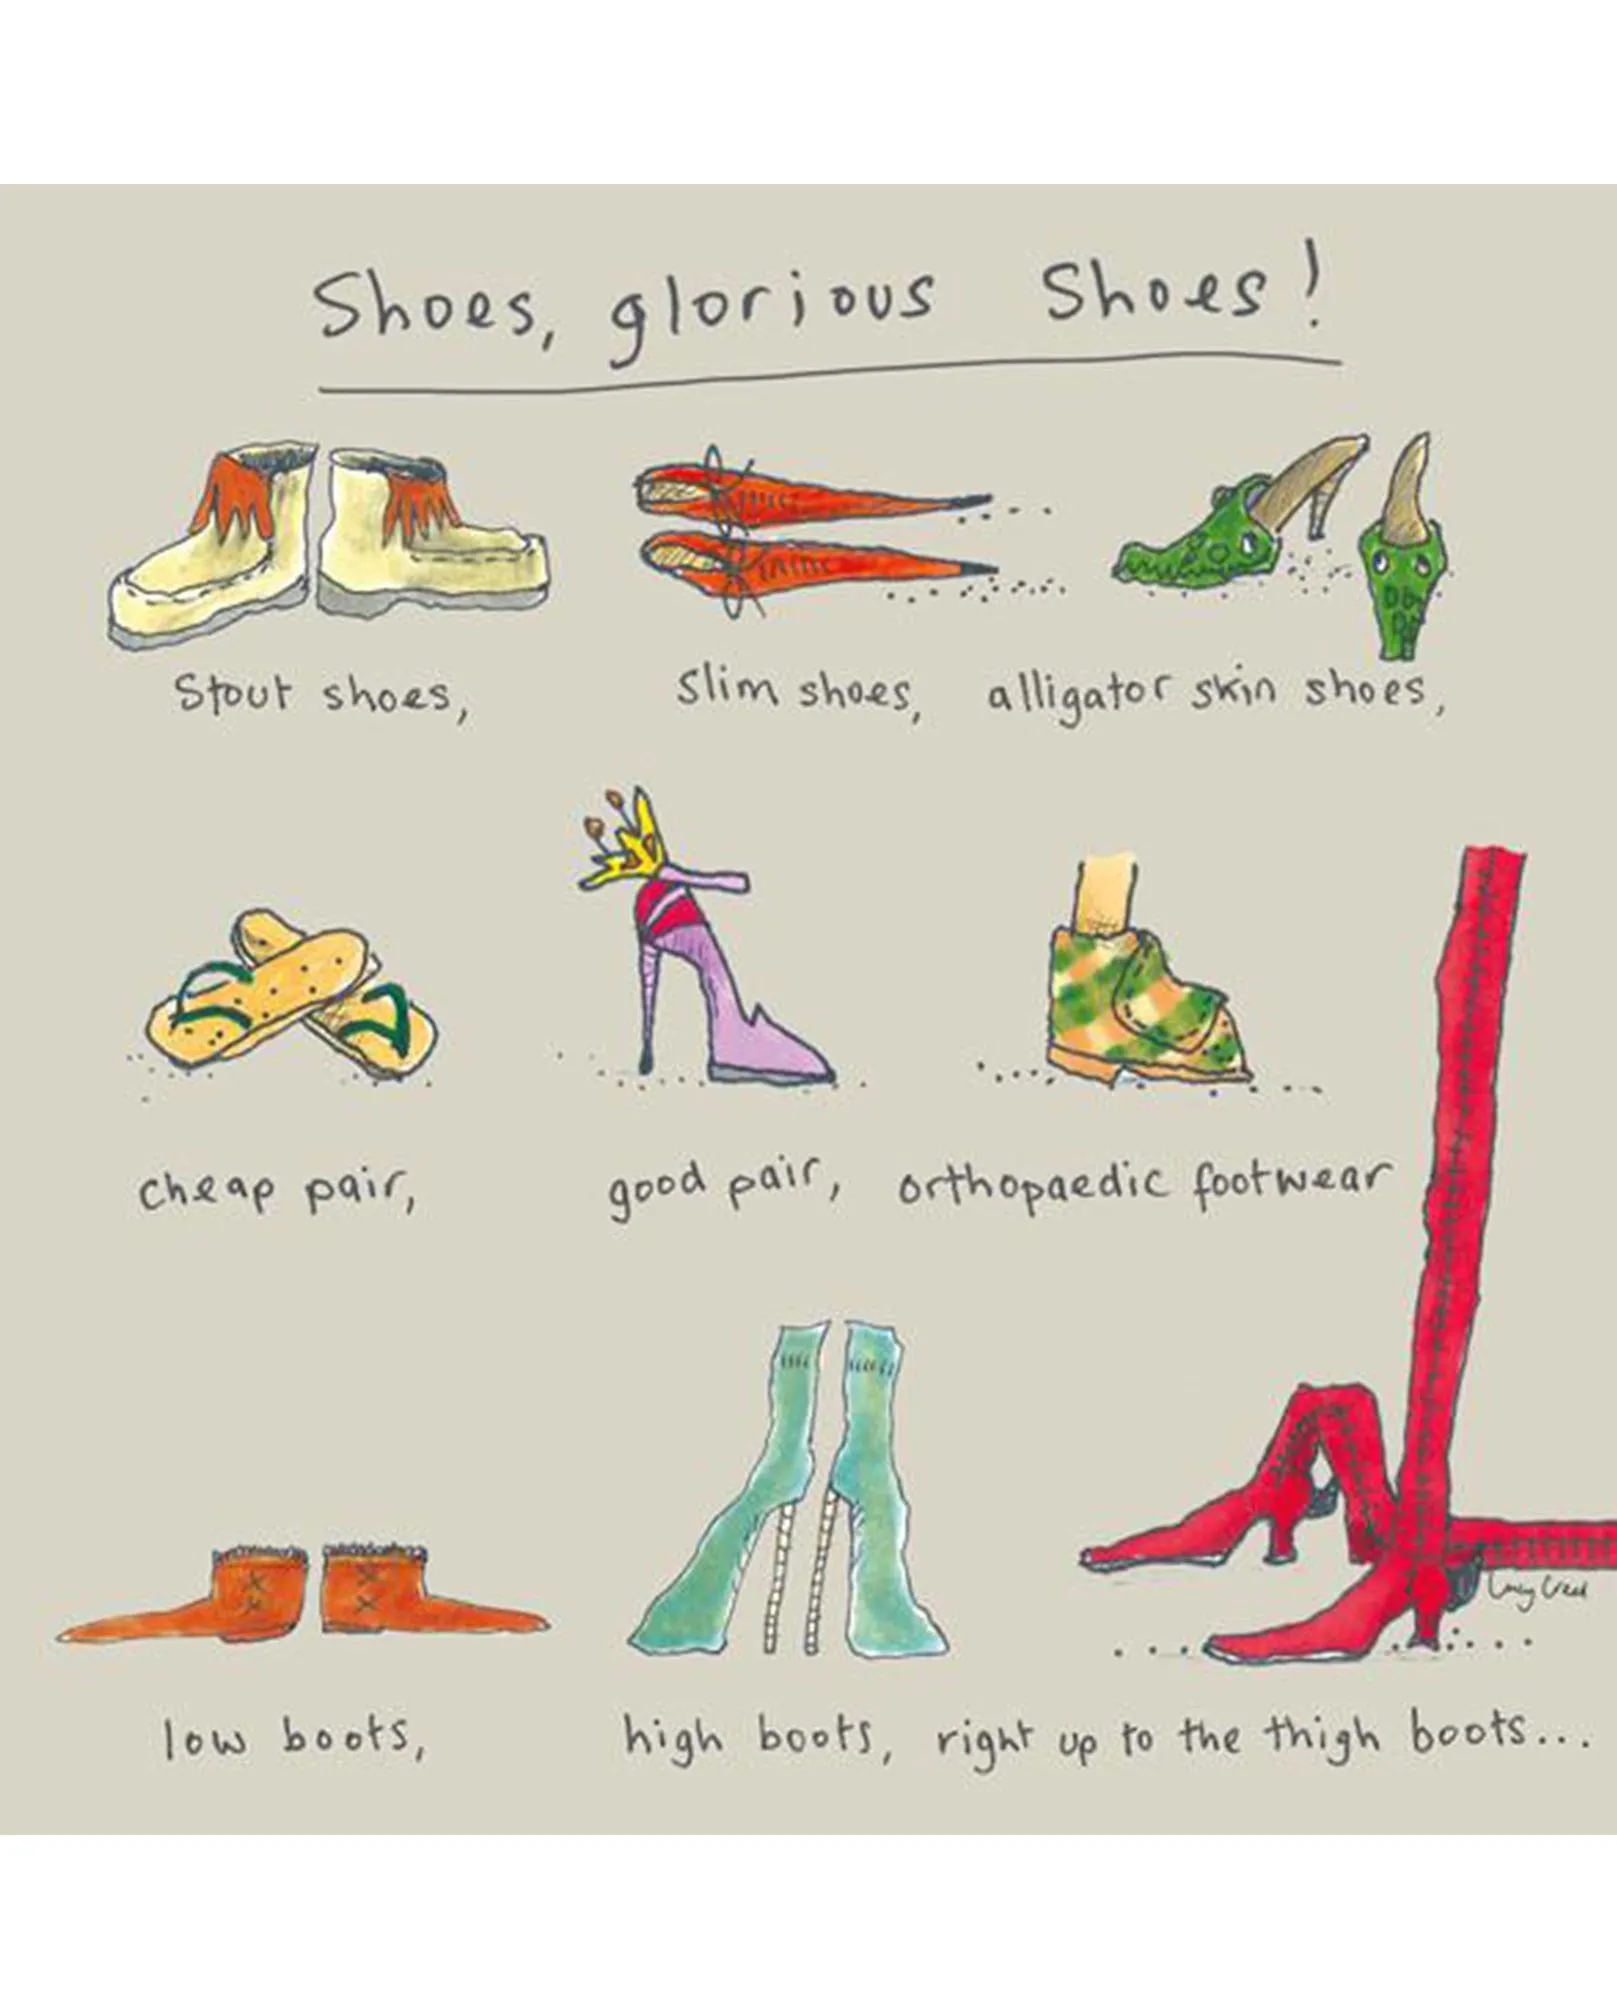 Shoes, glorious Shoes!
Stout shoes,
slim shoes,
alligator skin shoes,
cheap pair,
good pair,
orthopaedic footwear
low boots,
high boots,
right up to the thigh boots...
Lucy